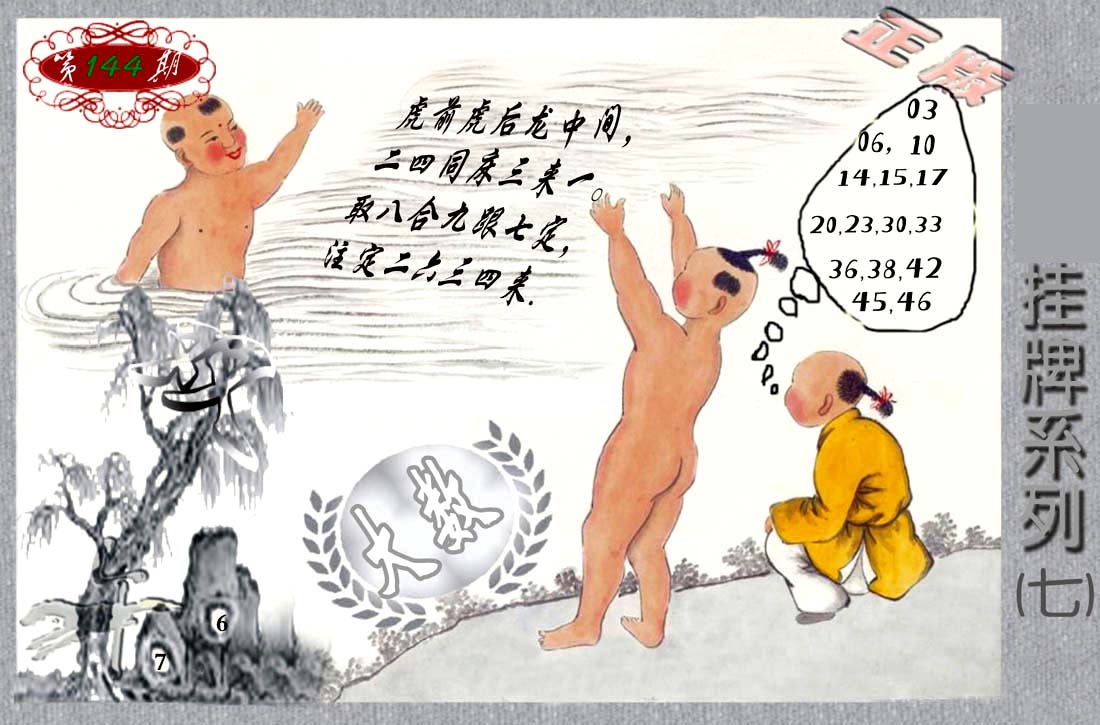 第144期
正版
虎前虎后龙中间，
二四同床三来一。
取八合九跟七定，
注定二六三四来.
03
06, 10
14,15,17
20,23,30,33
36,38,42
45,46
大数
6
7
挂牌系列(七)